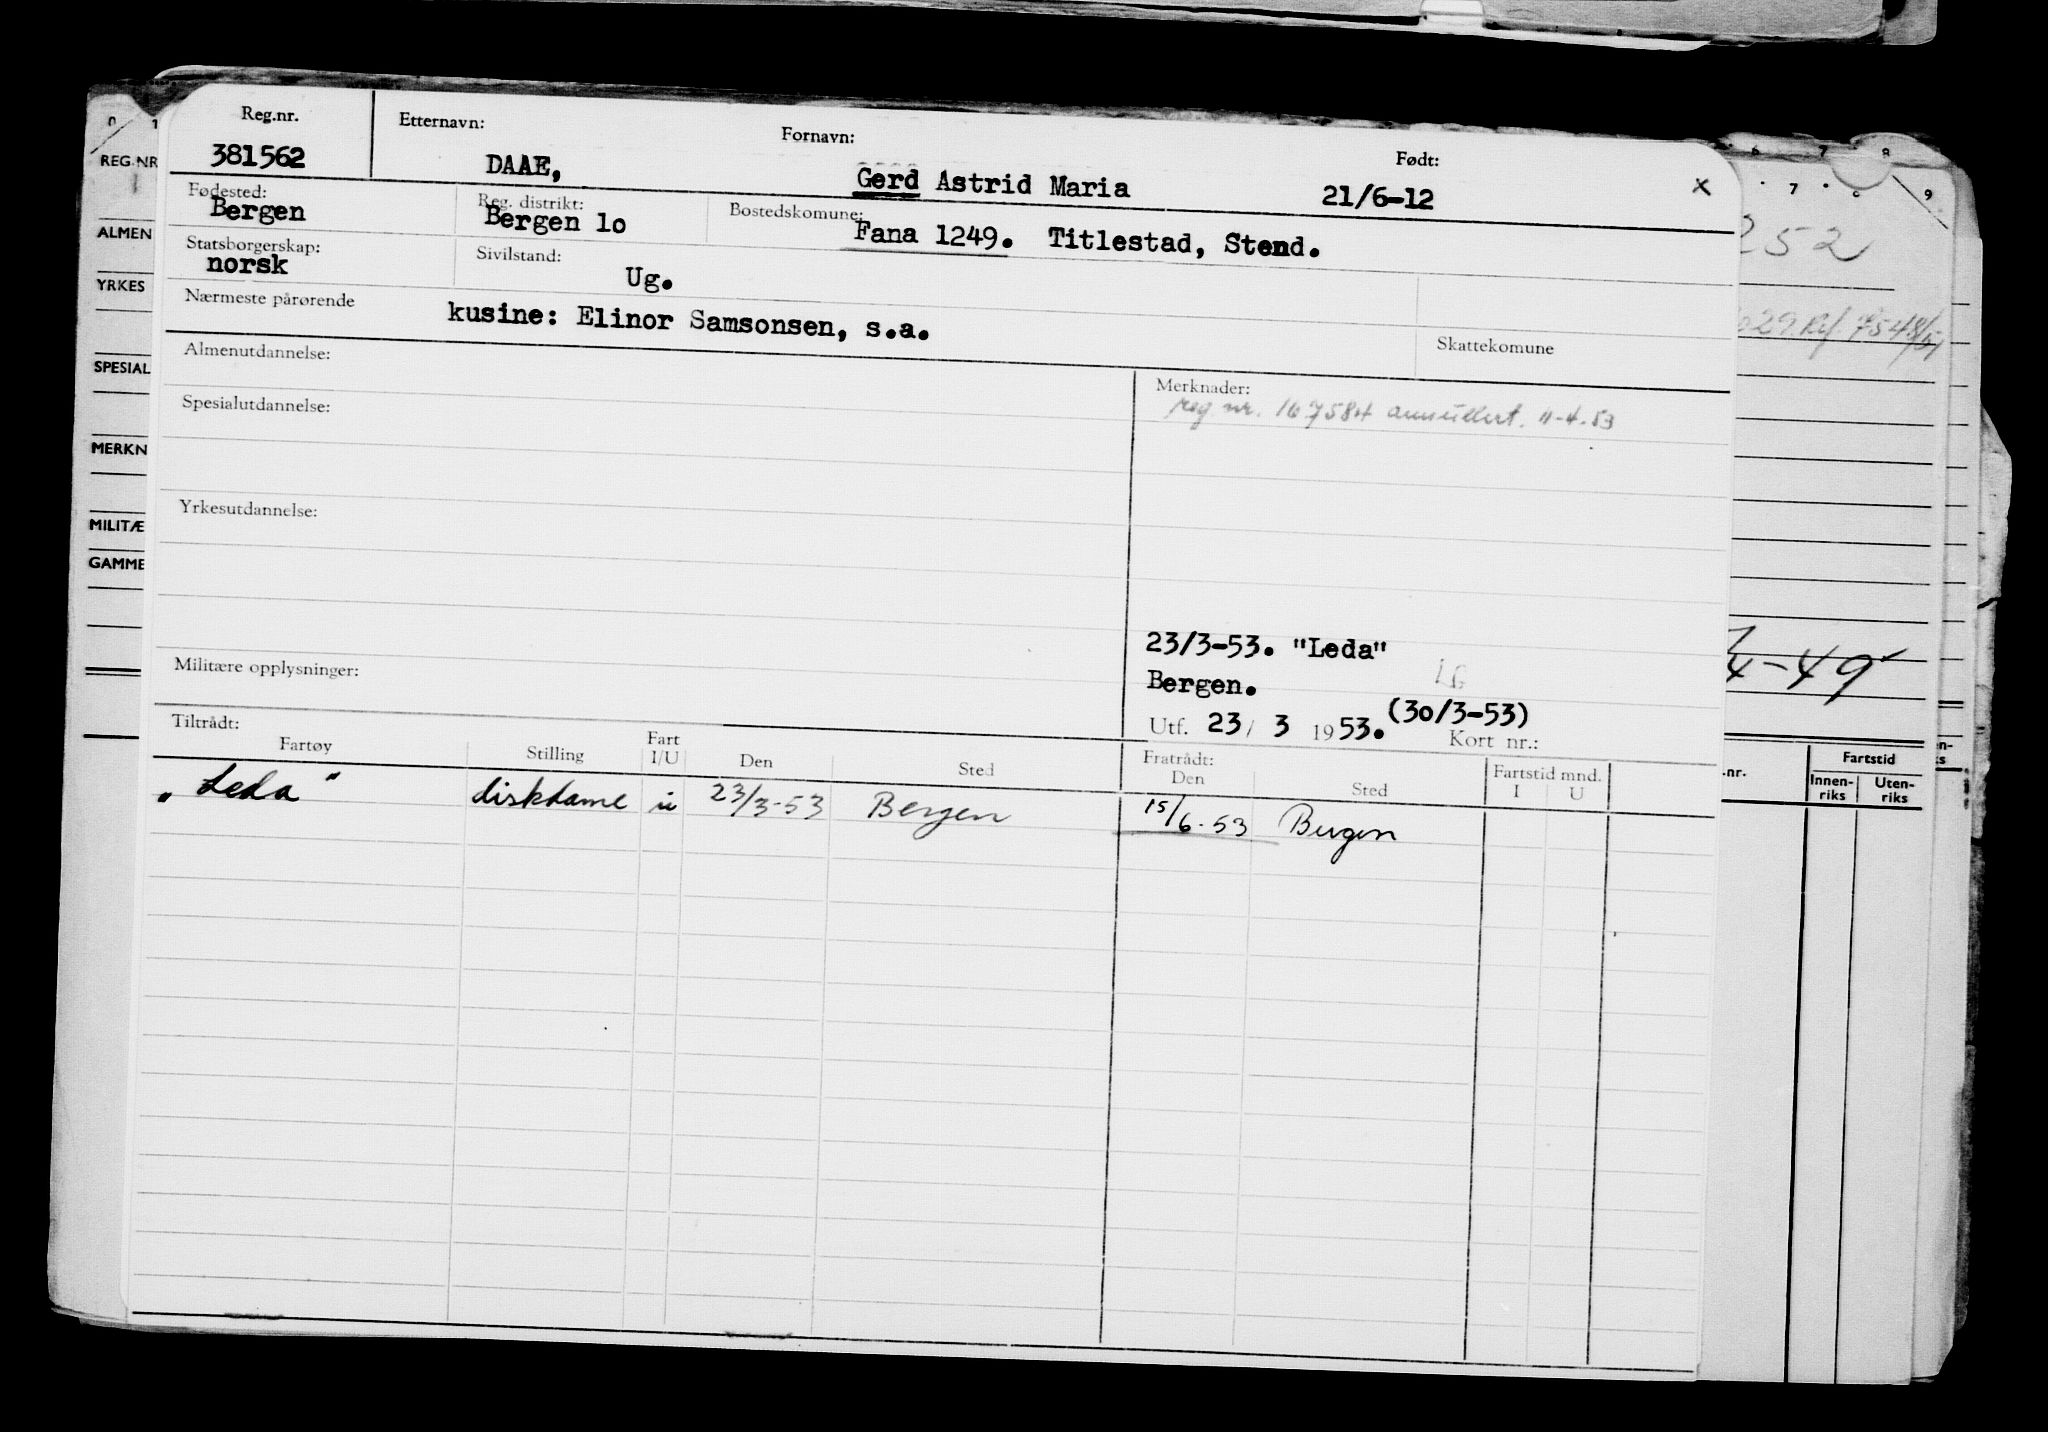 Reg.nr.
381562
Etternavn:
DAAE,
Fornavn:
Gerd Astrid Maria
Født:
21/6-12
x
Fødested:
Bergen
Reg. distrikt:
Bergen 1o
Bostedskomune:
Fana 1249. Titlestad, Stend.
Statsborgerskap:
norsk
Sivilstand:
Ug.
Nærmeste pårørende
kusine: Elinor Samsonsen, s.a.
Skattekomune
Almenutdannelse:
Merknader:
reg nr. annullert. 11-4-53
Spesialutdannelse:
Yrkesutdannelse:
Militære opplysninger:
23/3-53. "Leda"
Bergen.
LG
Utf. 23/ 3 1953. (3o/3-53)
Kort nr.:
Tiltrådt:
Fartøy Stilling Fart I/U Den Sted
Fratrådt:
Den Sted
Fartstid mnd.
I U
"Leda" diskdame u 23/3-53 Bergen 15/6-53 Bergen
0 1
REG.NR
ALMEN
YRKES
SPESIAL
MERKN
MILITÆ
GAMME
6 7 8
7 8 9
252
4-49
.nr.
Fartstid
Innen-
riks
Uten-
riks